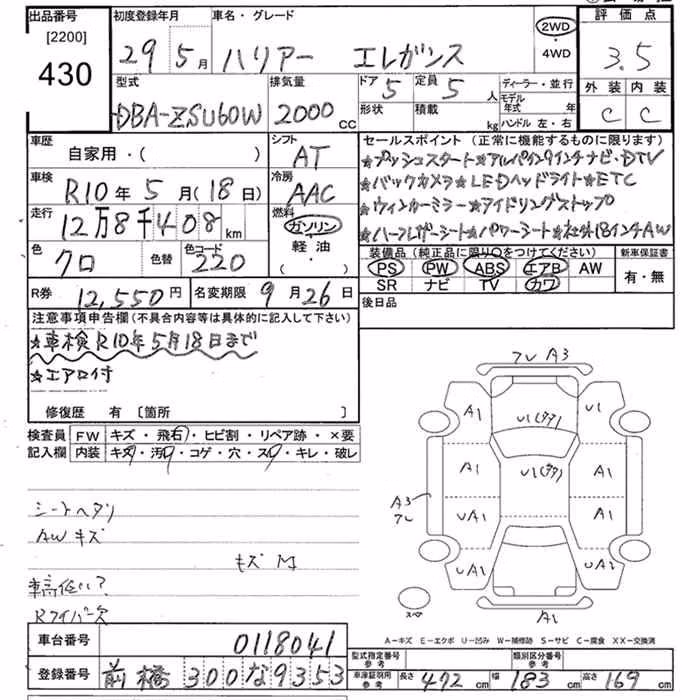 出品番号 初度登録年月 車名・グレード 評価点
[2200] 29年5月 ハリアー エレガンス 2WD ・4WD 3.5
430
型式 排気量 ドア 定員 ディーラー・並行 外装 内装
DBA-ZSU60W 2000cc 5 5人 モデル年式 年 C C
形状 積載 kg ハンドル 左・右
車歴 シフト セールスポイント (正常に機能するものに限ります)
自家用・( ) AT ★プッシュスタート★アルパイン9インチナビ・DTV
車検 冷房 ★バックカメラ★LEDヘッドライト★ETC
R10年5月(18日) AAC ★ウィンカーミラー★アイドリングストップ
走行 燃料 ★ハーフレザーシート★パワーシート★社外18インチAW
12万8千408km ガソリン
色 色替 色コード 軽油 装備品(純正品に限り○をつけてください) 新車保証書
クロ 220 ( ・ ) PS PW ABS エアB AW 有・無
SR ナビ TV カワ
R券 12,550円 名変期限 9月26日 後日品
注意事項申告欄(不具合内容等は具体的に記入して下さい)
★車検R10年5月18日まで
★エアロ付
修復歴 有 [箇所 ]
検査員 FW キズ・飛石・ヒビ割・リペア跡・×要
記入欄 内装 キズ・汚れ・コゲ・穴・スレ・キレ・破レ
ワレ A3
A1 U1(タタ) U1
A1 U1(タタ) A1
A3
ワレ
UA1 A1
UA1 UA1
スペア A1
シートヘタリ
AWキズ
キズ M
車高低い?
Rワイパー欠
A-キズ E-エクボ U-凹み W-補修跡 S-サビ C-腐食 XX-交換済
車台番号 0118041 型式指定番号 参考 類別区分番号 参考
登録番号 前橋 300 な 9353 車庫証明用 参考 長さ 472cm 幅 183cm 高さ 169cm